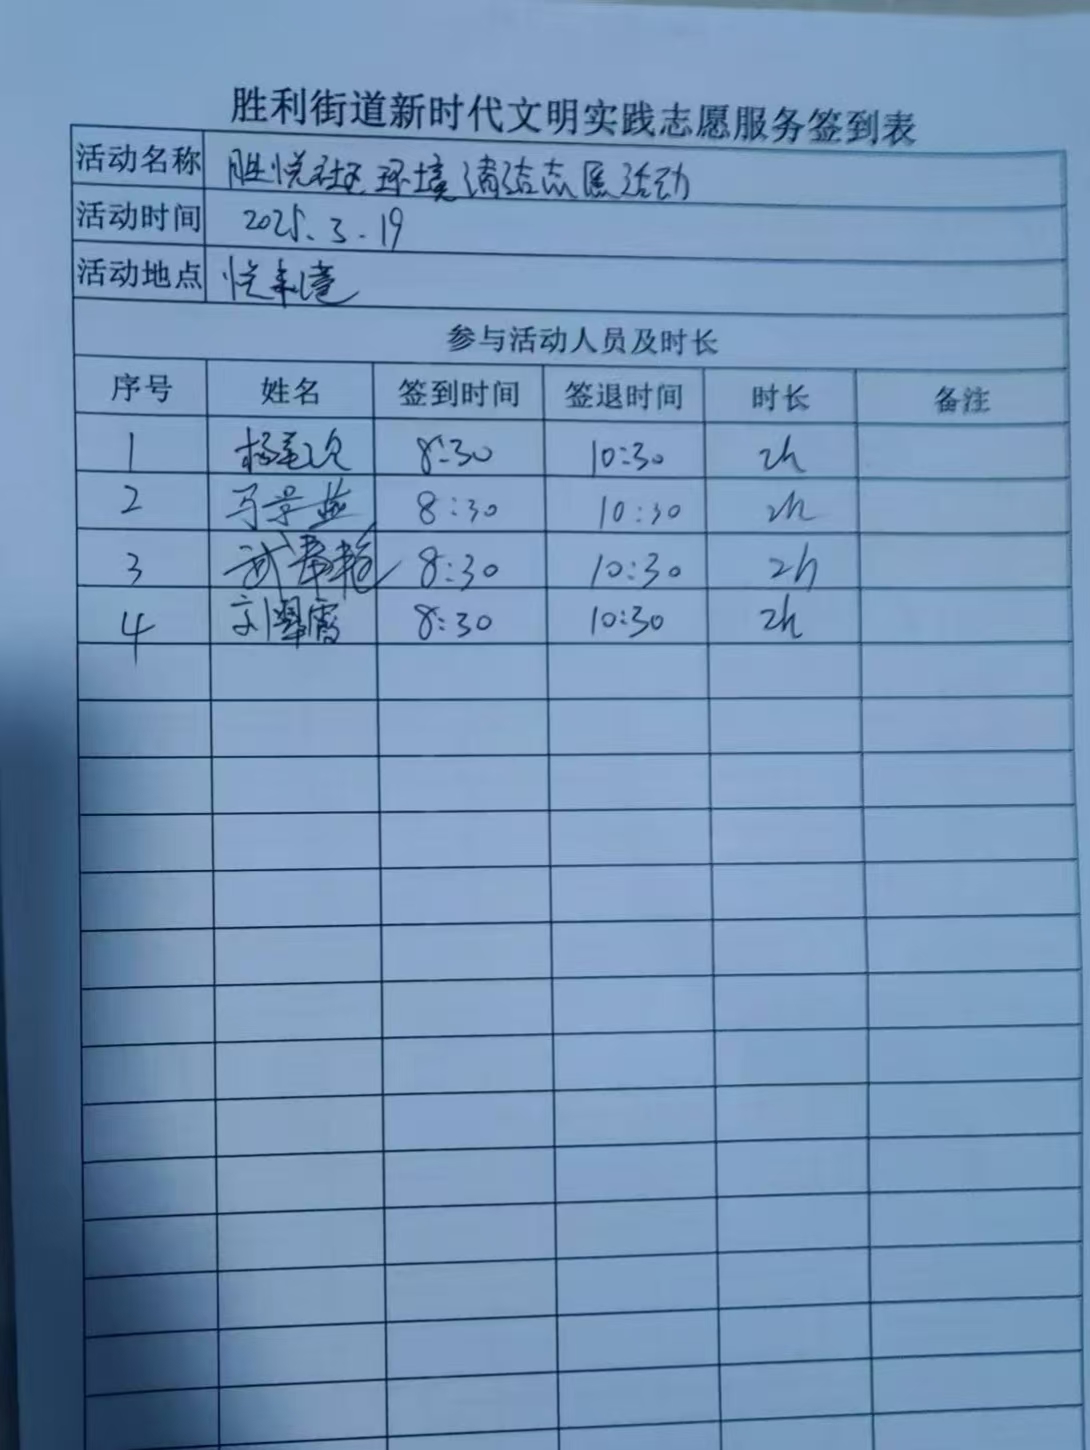 胜利街道新时代文明实践志愿服务签到表
活动名称 胜悦社区环境清洁志愿活动
活动时间 2025.3.19
活动地点 悦来湾
参与活动人员及时长
序号 姓名 签到时间 签退时间 时长 备注
1 8:30 10:30 2h
2 马景燕 8:30 10:30 2h
3 武春艳 8:30 10:30 2h
4 刘翠霞 8:30 10:30 2h